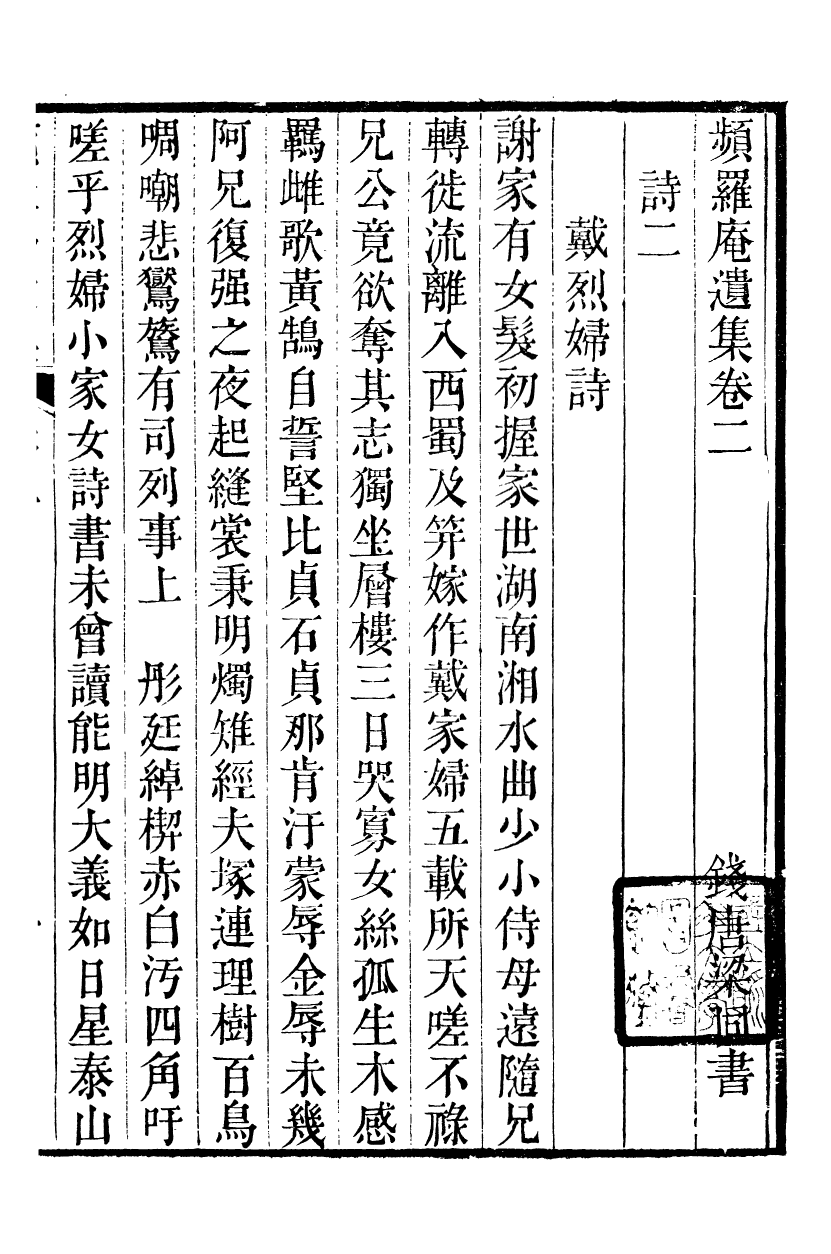 頻羅庵遺集卷二
錢唐梁同書
詩二
戴烈婦詩
謝家有女髮初握家世湖南湘水曲少小侍母遠隨兄
轉徙流離入西蜀及笄嫁作戴家婦五載所天嗟不祿
兄公竟欲奪其志獨坐層樓三日哭寡女絲孤生木感
羈雌歌黃鵠自誓堅比貞石貞那肯汙蒙辱金辱未幾
阿兄復强之夜起縫裳秉明燭雉經夫塚連理樹百鳥
啁嘲悲鸑鷟有司列事上　彤廷綽楔赤白汚四角吁
嗟乎烈婦小家女詩書未曾讀能明大義如日星泰山